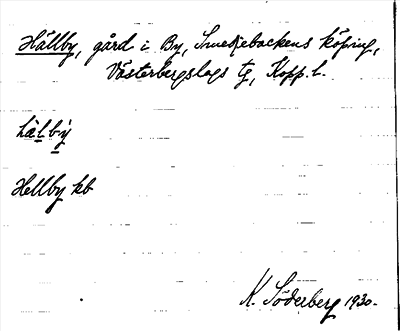 Hällby, gård i By, Smedjebackens köping,
Västerbergslags tg, Kopp. l.
hä̀l̠bý̠
Hellby kb
K. Söderberg 1930.